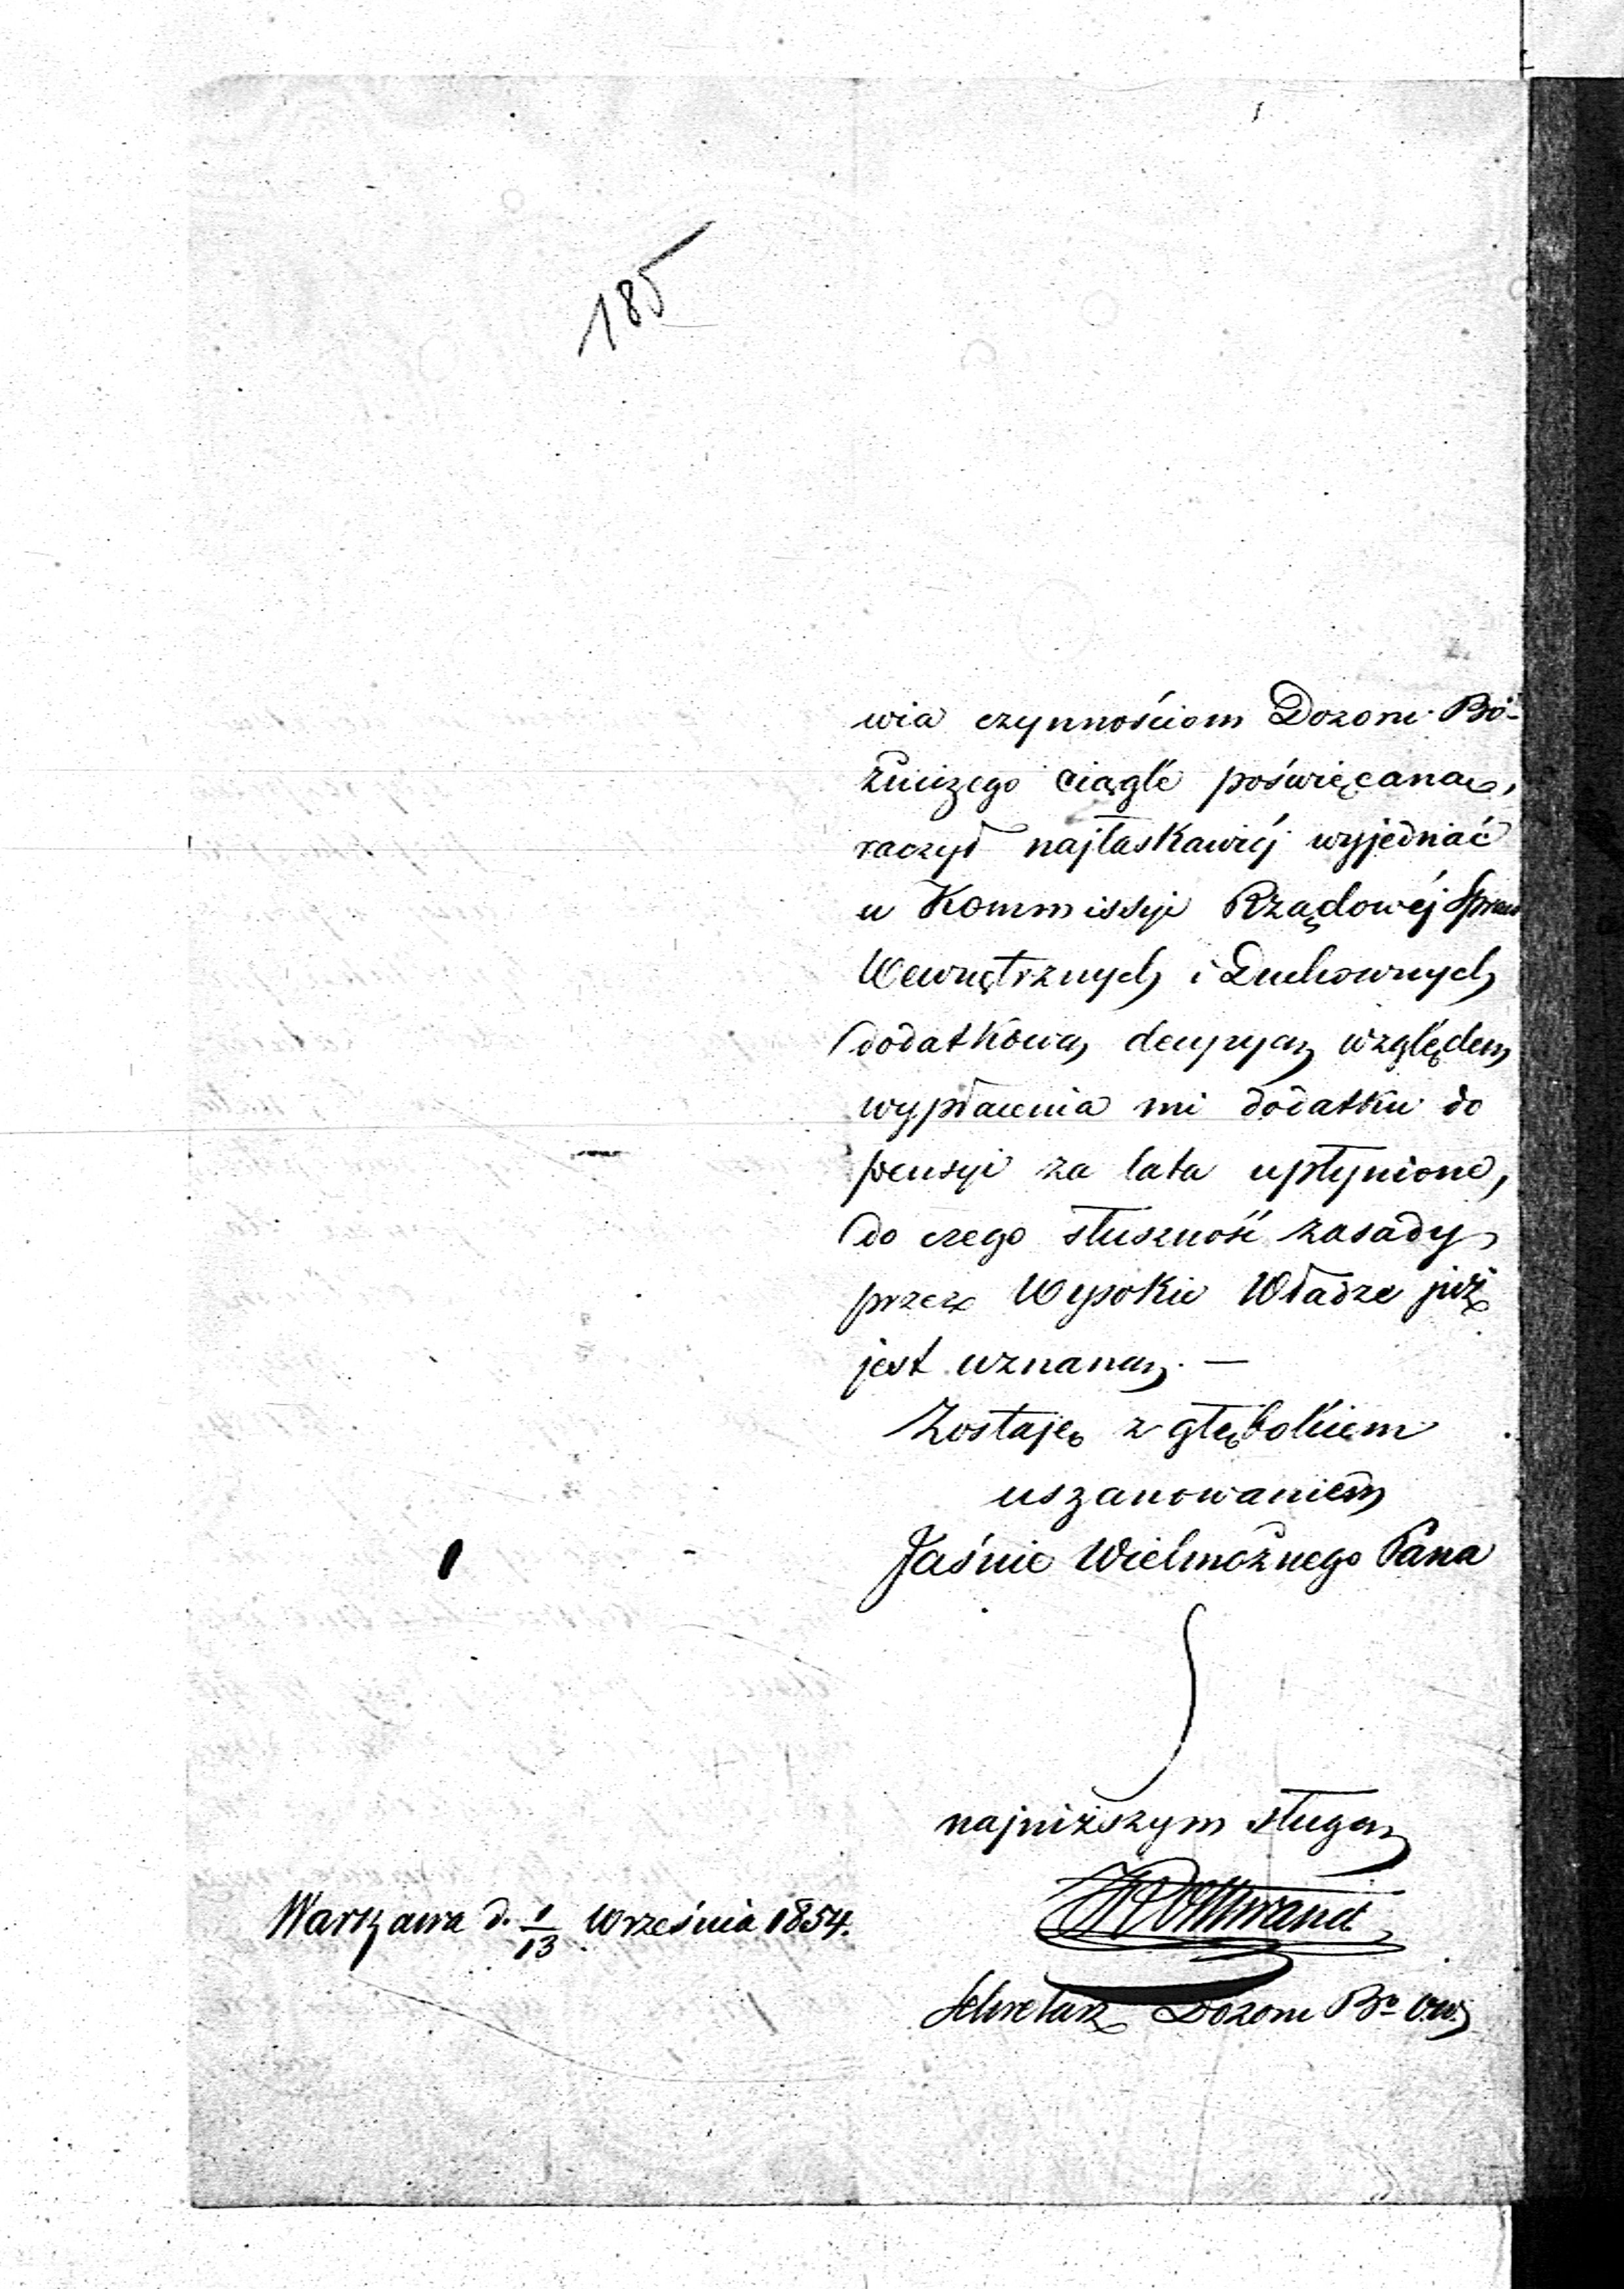 185
wia czynnościom Dozoru Bó-
żniczego ciągle poświęcana,
raczył najłaskawiéj wyjednać
u Kommissyi Rządowéj Spraw
Wewnętrznych i Duchownych
dodatkową decyzyą względem
wypłacenia mi dodatku do
pensyi za lata upłynione,
do czego słuszność zasady
przez Wysokie Władze już
jest uznaną. —
Zostaję z głębokiem
uszanowaniem
Jaśnie Wielmożnego Pana
najniższym sługą
Warszawa d. 1/13 Września 1854.
Sekretarz Dozoru Bo